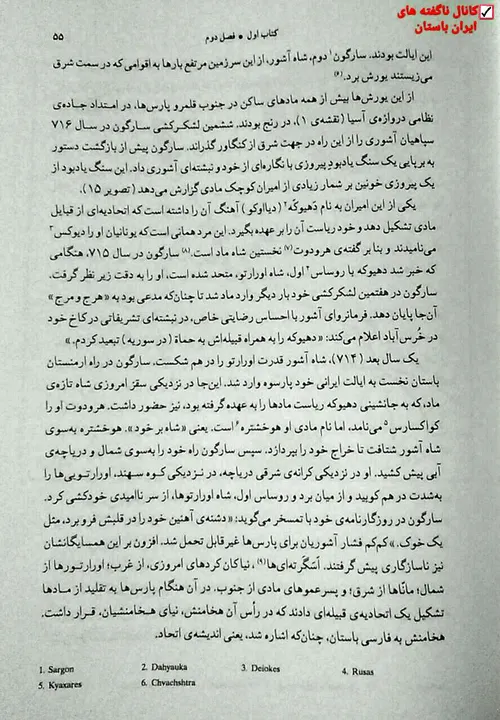 کانال ناگفته های
ایران باستان
کتاب اول • فصل دوم
۵۵
این ایالت بودند. سارگون۱ دوم، شاه آشور، از این سرزمین مرتفع بارها به اقوامی که در سمت شرق
می‌زیستند یورش برد.(۶)
از این یورش‌ها بیش از همه مادهای ساکن در جنوب قلمرو پارس‌ها، در امتداد جاده‌ی
نظامی دروازه‌ی آسیا (نقشه‌ی ۱)، در رنج بودند. ششمین لشکرکشی سارگون در سال ۷۱۶
سپاهیان آشوری را از این راه در جهت شرق از کنگاور گذراند. سارگون پیش از بازگشت دستور
به برپایی یک سنگ یادبودِ پیروزی با نگاره‌ای از خود و نبشته‌ای آشوری داد. این سنگ یادبود از
یک پیروزی خونین بر شمار زیادی از امیران کوچک مادی گزارش می‌دهد (تصویر ۱۵).
یکی از این امیران به نام دَهیوکه۲ (دیااوکو) آهنگ آن را داشته است که اتحادیه‌ای از قبایل
مادی تشکیل دهد و خود ریاست آن را بر عهده بگیرد. این مرد همانی است که یونانیان او را دیوکس۳
می‌نامیدند و بنا بر گفته‌ی هرودوت(۷) نخستین شاه ماد است.(۸) سارگون در سال ۷۱۵، هنگامی
که خبر شد دهیوکه با روساس۴ اول، شاه اورارتو، متحد شده است، او را به دقت زیر نظر گرفت.
سارگون در هفتمین لشکرکشی خود بار دیگر وارد ماد شد تا چنان‌که مدعی بود به «هرج و مرج»
آن‌جا پایان دهد. فرمانروای آشور با احساس رضایتی خاص، در نبشته‌ای تشریفاتی در کاخ خود
در خُرس‌آباد اعلام می‌کند: «دهیوکه را به همراه قبیله‌اش به حماة (در سوریه) تبعید کردم.»
یک سال بعد (۷۱۴)، شاه آشور قدرت اورارتو را در هم شکست. سارگون در راه ارمنستان
باستان نخست به ایالت ایرانی خود پارسوه وارد شد. این‌جا در نزدیکی سقز امروزی شاه تازه‌ی
ماد، که به جانشینی دهیوکه ریاست مادها را به عهده گرفته بود، نیز حضور داشت. هرودوت او را
کواکسارس۵ می‌نامد، اما نام مادی او هوخشتره۶ است. یعنی «شاه بر خود». هوخشتره به‌سوی
شاه آشور شتافت تا خراج خود را بپردازد. سپس سارگون راه خود را به‌سوی شمال و دریاچه‌ی
آبی پیش کشید. او در نزدیکی کرانه‌ی شرقی دریاچه، در نزدیکی کوه سهند، اورارتویی‌ها را
به‌شدت در هم کوبید و از میان برد و روساس اول، شاه اورارتوها، از سر ناامیدی خودکشی کرد.
سارگون در روزگارنامه‌ی خود با تمسخر می‌گوید: «دشنه‌ی آهنین خود را در قلبش فرو برد، مثل
یک خوک.» کم‌کم فشار آشوریان برای پارس‌ها غیرقابل تحمل شد. افزون بر این همسایگانشان
نیز ناسازگاری پیش گرفتند. اَسَگَرته‌ای‌ها(۹)، نیاکان کردهای امروزی، از غرب؛ اورارتورها از
شمال؛ ماناها از شرق؛ و پسرعموهای مادی از جنوب. در آن هنگام پارس‌ها به تقلید از مادها
تشکیل یک اتحادیه‌ی قبیله‌ای دادند که در رأس آن هخامنش، نیای هخامنشیان، قرار داشت.
هخامنش به فارسی باستان، چنان‌که اشاره شد، یعنی اندیشه‌ی اتحاد.
1. Sargon 2. Dahyauka 3. Deiokes 4. Rusas
5. Kyaxares 6. Chvachshtra